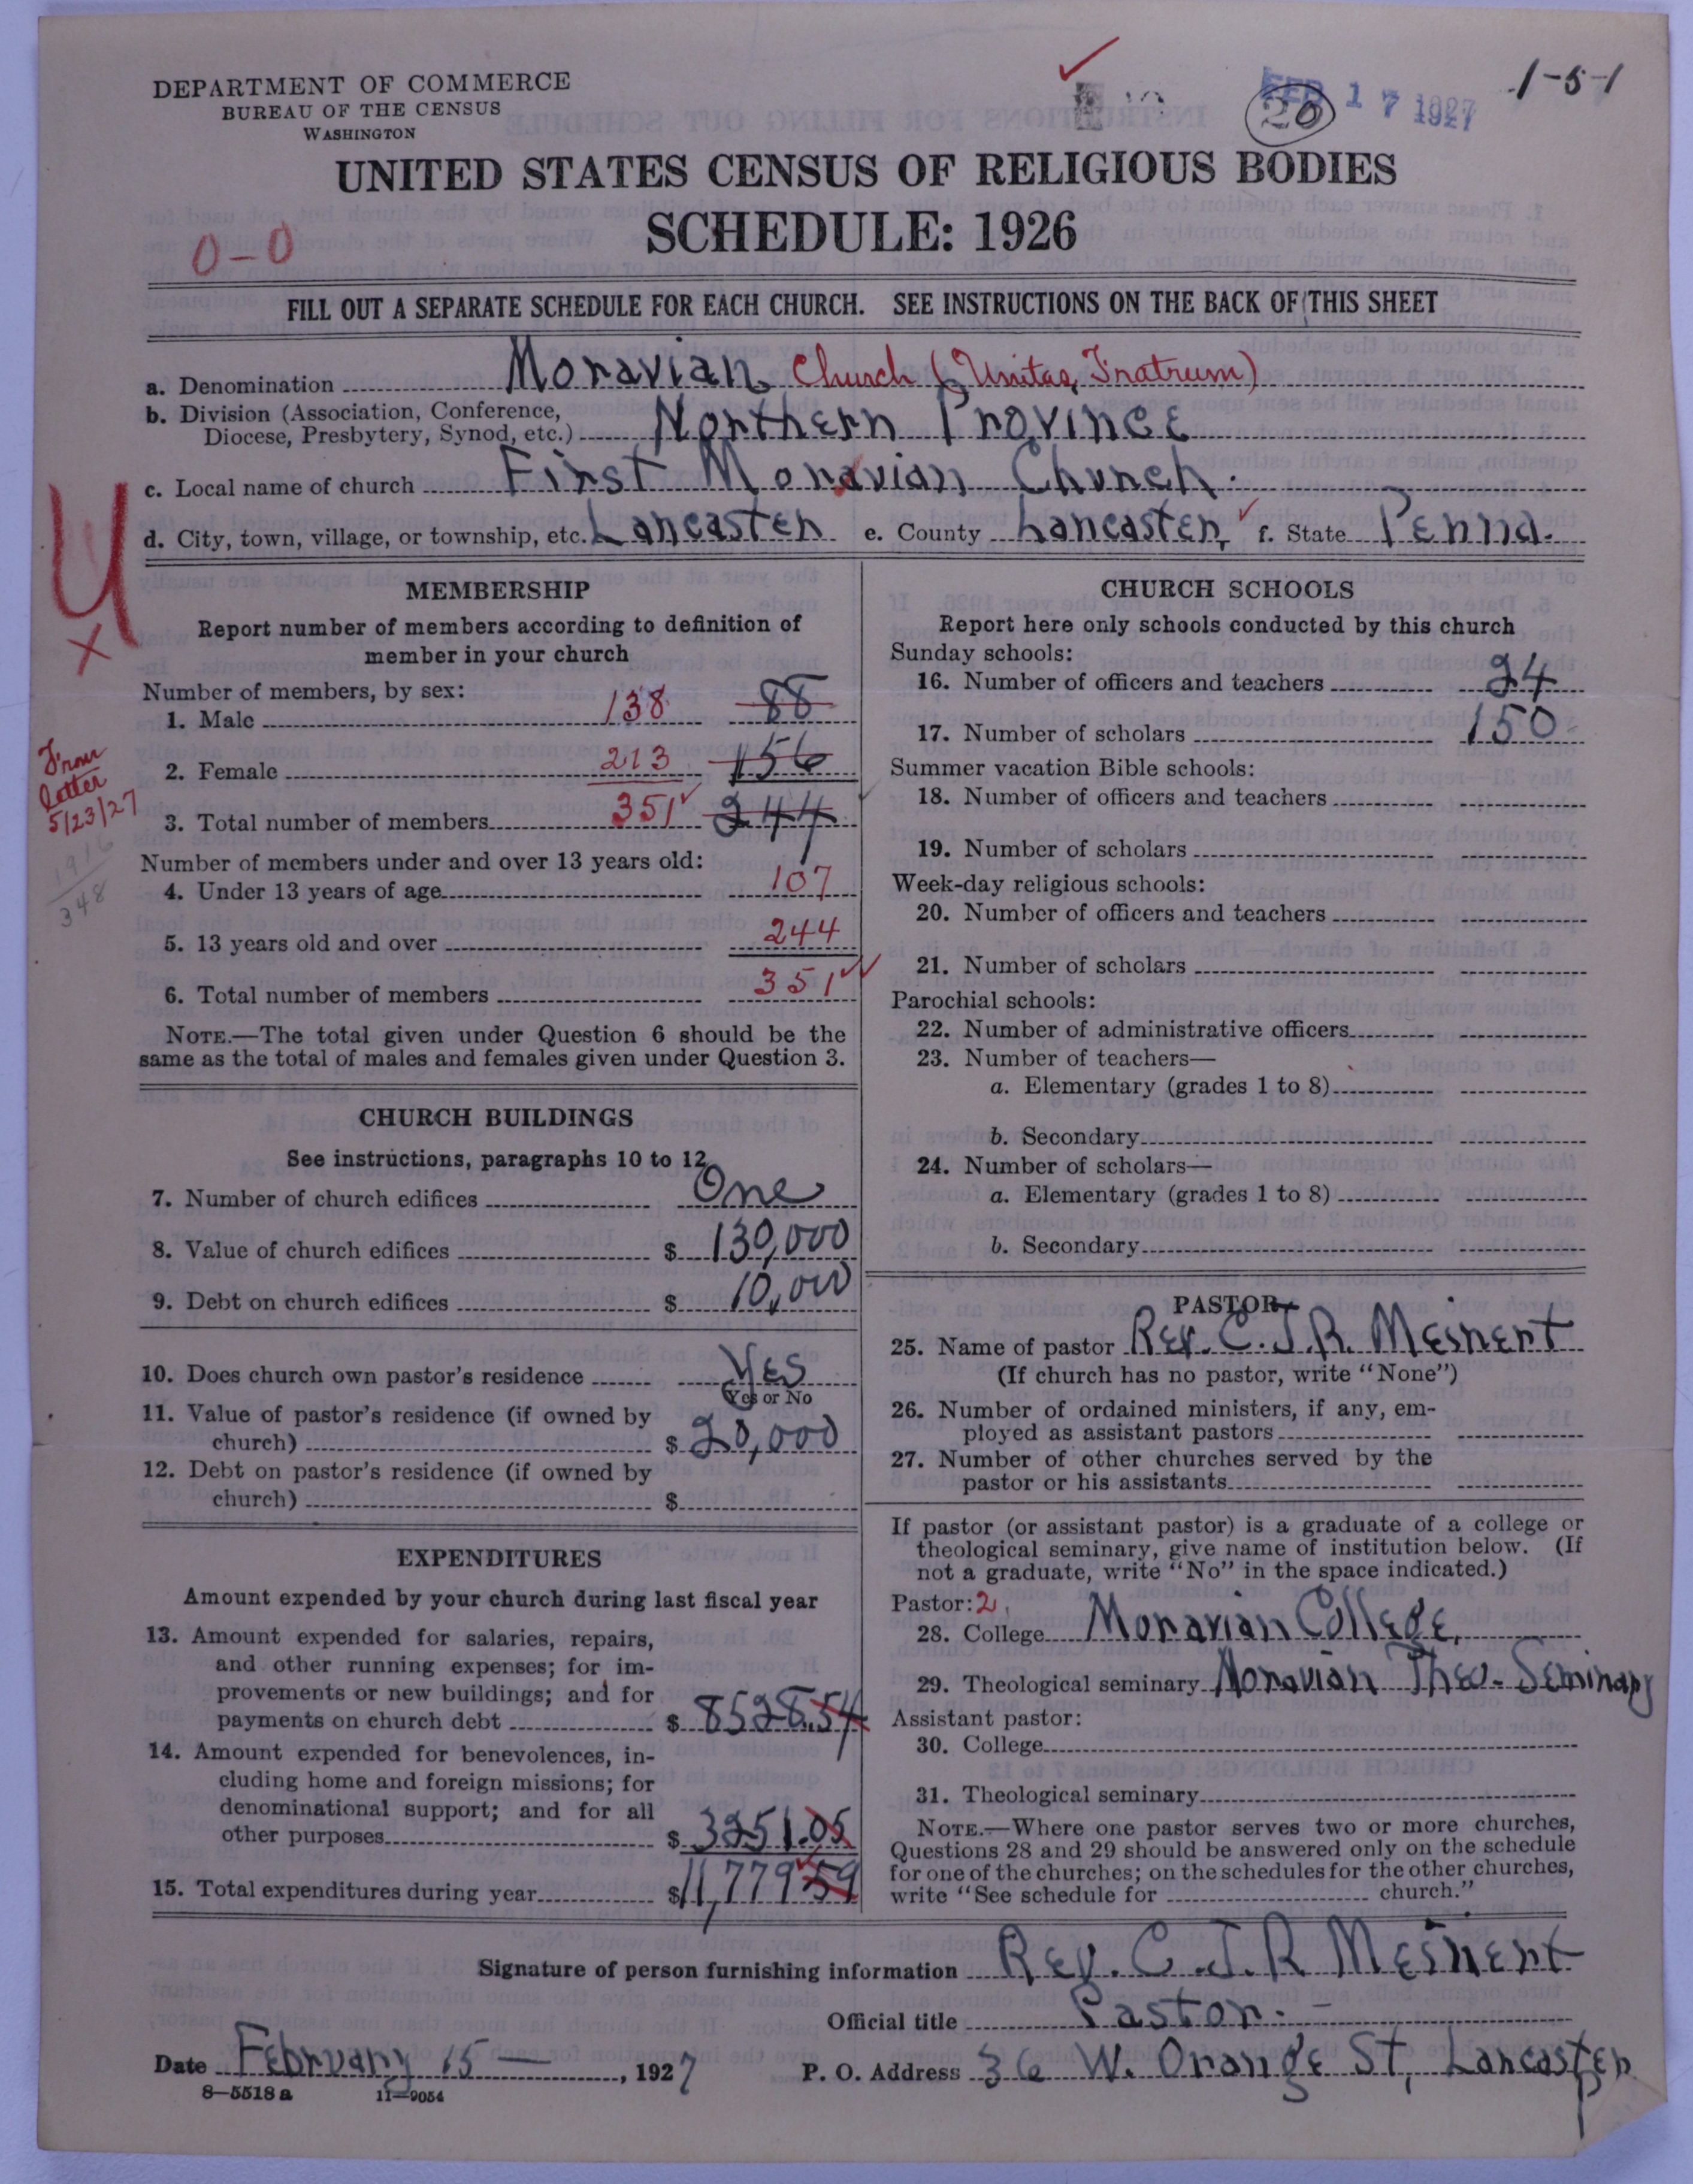 DEPARTMENT OF COMMERCE
BUREAU OF THE CENSUS
WASHINGTON
FEB 17 1927
20
1-5-1
UNITED STATES CENSUS OF RELIGIOUS BODIES
SCHEDULE: 1926
0-0
FILL OUT A SEPARATE SCHEDULE FOR EACH CHURCH. SEE INSTRUCTIONS ON THE BACK OF THIS SHEET
a. Denomination Moravian Church (Unitas Fratrum)
b. Division (Association, Conference,
Diocese, Presbytery, Synod, etc.) Northern Province
c. Local name of church First Moravian Church.
d. City, town, village, or township, etc. Lancaster e. County Lancaster, f. State Penna.
MEMBERSHIP
Report number of members according to definition of
member in your church
Number of members, by sex:
1. Male 138 88
2. Female 213 156
From
letter
5/23/27
3. Total number of members 351 244
1916
348
Number of members under and over 13 years old:
4. Under 13 years of age 107
5. 13 years old and over 244
6. Total number of members 351
NOTE.—The total given under Question 6 should be the
same as the total of males and females given under Question 3.
CHURCH BUILDINGS
See instructions, paragraphs 10 to 12
7. Number of church edifices One
8. Value of church edifices $ 130,000
9. Debt on church edifices $ 10,000
10. Does church own pastor's residence Yes
(Yes or No
11. Value of pastor's residence (if owned by
church) $ 20,000
12. Debt on pastor's residence (if owned by
church) $
EXPENDITURES
Amount expended by your church during last fiscal year
13. Amount expended for salaries, repairs,
and other running expenses; for im-
provements or new buildings; and for
payments on church debt $ 8528.54
14. Amount expended for benevolences, in-
cluding home and foreign missions; for
denominational support; and for all
other purposes $ 3251.05
15. Total expenditures during year $ 11,779 59
CHURCH SCHOOLS
Report here only schools conducted by this church
Sunday schools:
16. Number of officers and teachers 24
17. Number of scholars 150
Summer vacation Bible schools:
18. Number of officers and teachers
19. Number of scholars
Week-day religious schools:
20. Number of officers and teachers
21. Number of scholars
Parochial schools:
22. Number of administrative officers
23. Number of teachers—
a. Elementary (grades 1 to 8)
b. Secondary
24. Number of scholars—
a. Elementary (grades 1 to 8)
b. Secondary
PASTOR
25. Name of pastor Rev. C. J. R. Meinert
(If church has no pastor, write "None")
26. Number of ordained ministers, if any, em-
ployed as assistant pastors
27. Number of other churches served by the
pastor or his assistants
If pastor (or assistant pastor) is a graduate of a college or
theological seminary, give name of institution below. (If
not a graduate, write "No" in the space indicated.)
Pastor: 2
28. College Moravian College,
29. Theological seminary Moravian Theo. Seminary
Assistant pastor:
30. College
31. Theological seminary
NOTE.—Where one pastor serves two or more churches,
Questions 28 and 29 should be answered only on the schedule
for one of the churches; on the schedules for the other churches,
write "See schedule for church."
Signature of person furnishing information Rev. C. J. R Meinert
Official title Pastor.
Date February 15 — , 1927 P. O. Address 36 W. Orange St, Lancaster
8—5518 a 11—9054